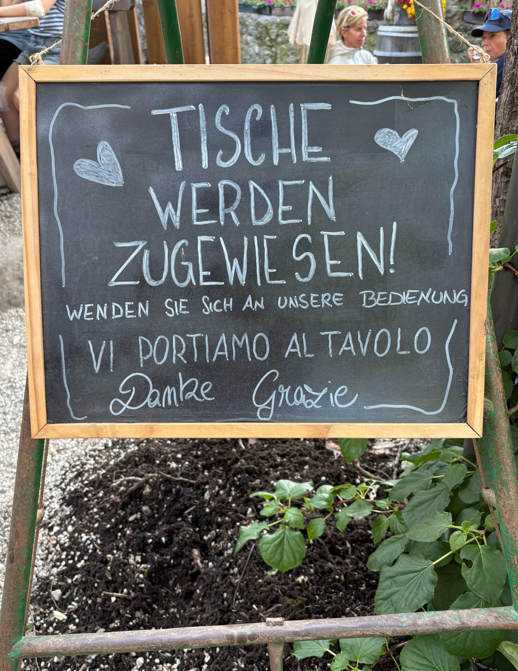 TISCHE
WERDEN
ZUGEWIESEN!
WENDEN SIE SICH AN UNSERE BEDIENUNG
VI PORTIAMO AL TAVOLO
Danke Grazie